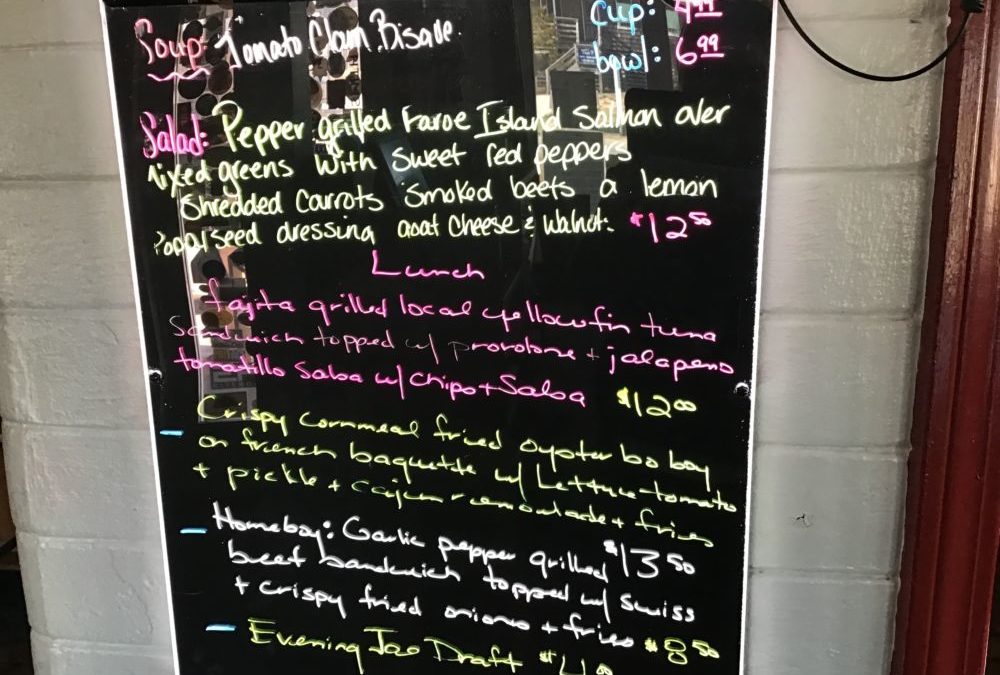 Soup: Tomato Clam Bisque
cup: 4.99
bowl: 6.99
Salad: Pepper grilled Faroe Island Salmon over
mixed greens with sweet red peppers
Shredded Carrots Smoked beets a lemon
Poppyseed dressing goat cheese & walnut: $12.50
Lunch
fajita grilled local yellowfin tuna
Sandwich topped w/ provolone + jalapeno
tomatillo Salsa w/ Chips + Salsa $12.00
- Crispy cornmeal fried oyster bo boy
on french baguette w/ Lettuce-tomato
+ pickle + cajun remoulade + fries
$13.50
- Homeboy: Garlic pepper grilled
beef sandwich topped w/ Swiss
+ crispy fried onions + fries $8.50
- Evening Jao Draft $4.00